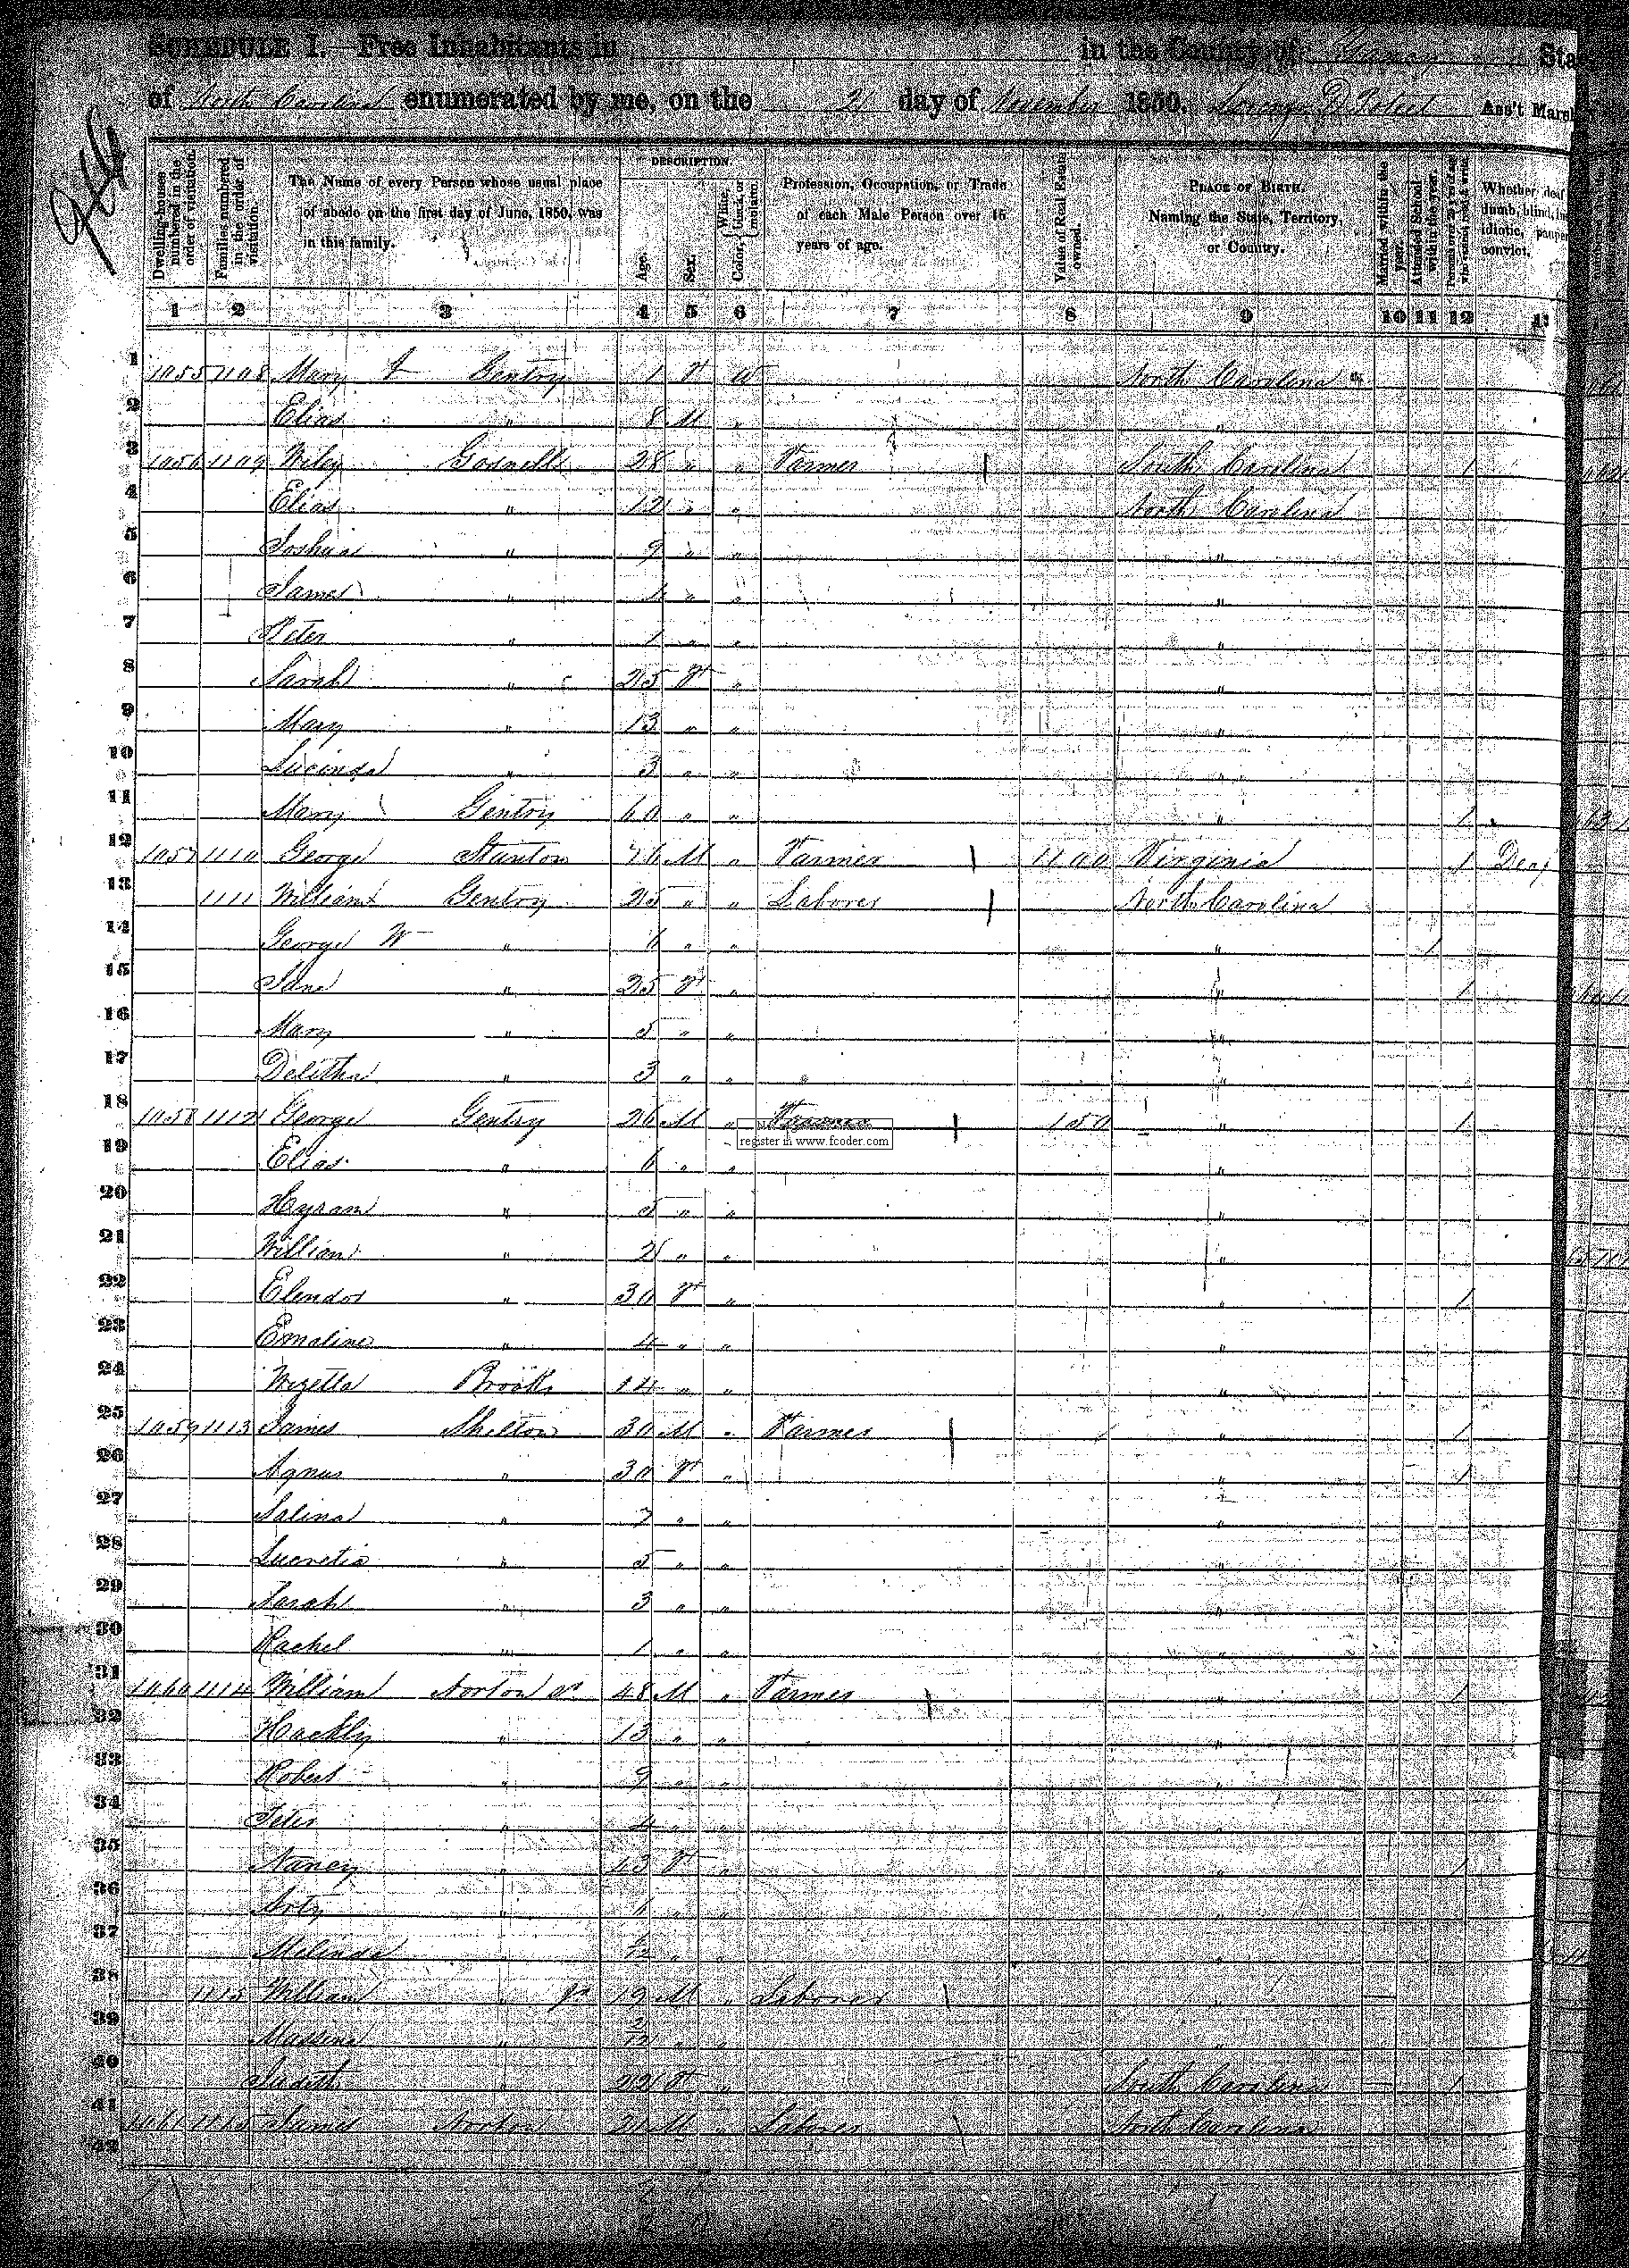 SCHEDULE I.—Free Inhabitants in in the County of Yancey State
of North Carolina enumerated by me, on the 2 day of November 1850. Ass't Marsh
DESCRIPTION.
Dwelling-houses numbered in the order of visitation.
Families numbered in the order of visitation.
The Name of every Person whose usual place of abode on the first day of June, 1850, was in this family.
Age.
Sex.
Color, White, black, or mulatto.
Profession, Occupation, or Trade of each Male Person over 15 years of age.
Value of Real Estate owned.
PLACE OF BIRTH. Naming the State, Territory, or Country.
Married within the year.
Attended School within the year.
Persons over 20 y'rs of age who cannot read & write.
Whether deaf dumb, blind, idiotic, pauper convict.
1 2 3 4 5 6 7 8 9 10 11 12
1 1055 1108 Mary Gentry 1 F W North Carolina
2 Elias " 8 M " "
3 1056 1109 Wiley Gosnell 28 " " Farmer South Carolina 1
4 Elias " 12 " " North Carolina
5 Joshua " 9 " " "
6 James " " " "
7 Peter " 1 " " "
8 Sarah " 25 F " "
9 Mary " 13 " " "
10 Lucinda " 3 " " "
11 Mary Gentry 60 " " " 1
12 1057 1110 George Stanton 76 M " Farmer 1100 Virginia 1 Deaf
13 1111 William Gentry 25 " " Laborer North Carolina
14 George W " 6 " " " 1
15 Jane " 25 F " " 1
16 Mary " 5 " " "
17 Delitha " 3 " " "
18 1058 1112 George Gentry 26 M " Farmer 150 " 1
register in www.fcoder.com
19 Elias " 6 " " "
20 Hyram " 5 " " "
21 William " 2 " " "
22 Elendor " 30 F " " 1
23 Emaline " 4 " " "
24 Wizetta Brooks 14 " " "
25 1059 1113 James Shelton 30 M " Farmer " 1
26 Agnus " 30 F " " 1
27 Salina " 7 " " "
28 Lucretia " 5 " " "
29 Sarah " 3 " " "
30 Rachel " 1 " " "
31 1060 1114 William Norton sr 48 M " Farmer " 1
32 Hackly " 13 " " "
33 Robert " 9 " " "
34 Peter " 4 " " "
35 Nancy " 43 F " " 1
36 " " " "
37 Melinda " " " "
38 1115 William " jr 19 M " Laborer "
39 " 2/12 " "
40 Judith " 22 F " South Carolina 1
41 1061 James Norton 21 M " Laborer North Carolina
42